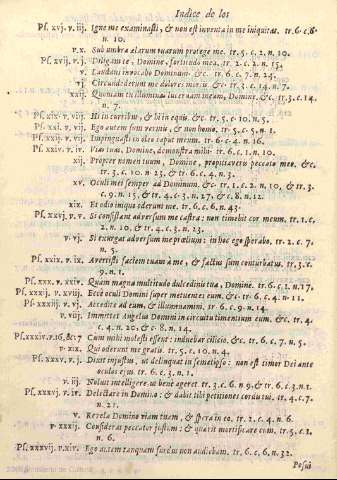 Indice de los
Pſ. xvj. v. iij. Igne me examinaſti, & non eſt inventa in me iniquitas. tr. 6. c. 8.
n. 10.
v. x. Sub umbra alarum tuarum protege me. tr. 5. c. 2. n. 10.
Pſ. xvij. v. j. Diligam te, Domine, fortitudo mea. tr. 2. c. 2. n. 15.
v. Laudans invocabo Dominum. &c. tr. 6. c. 7. n. 23.
vj. Circundederunt me dolores mortis. &c. tr. 3. c. 14. n. 7.
xxij. Quoniam tu illuminas lucernam meam, Domine. &c. tr. 3. c. 14.
n. 7.
Pſ. xix. v. viij. Hi in curribus, & hi in equis. &c. tr. 5. c. 10. n. 5.
Pſ. xxj. v. vij. Ego autem ſum vermis, & non homo. tr. 5. c. 5. n. 1.
Pſ. xxij. v. vij. Impinguaſti in oleo caput meum. tr. 6. c. 4. n. 16.
Pſ. xxiv. v. iv. Vias tuas, Domine, demonſtra mihi. tr. 6. c. 1. n. 10.
xij. Propter nomen tuum, Domine, propitiaveris peccato meo. &c.
tr. 3. c. 10. n. 23, & tr. 6. c. 4. n. 3.
xv. Oculi mei ſemper ad Dominum, &c. tr. 1. c. 2. n. 10, & tr. 3.
c. 9. n. 15, & tr. 4. c. 3. n. 27, & c. 8. n. 12.
xix. Et odio iniquo oderunt me. tr. 6. c. 6. n. 43.
Pſ. xxvj. v. v. Si conſiſtant adverſum me caſtra: non timebit cor meum. tr. 1. c.
2. n. 10, & tr. 4. c. 3. n. 23.
v. vj. Si exurgat adverſum me prælium: in hoc ego ſperabo. tr. 2. c. 7.
n. 5.
Pſ. xxix. v. ix. Avertiſti faciem tuam à me, & factus ſum conturbatus. tr. 3. c.
9. n. 1.
Pſ. xxx. v. xix. Quàm magna multitudo dulcedinis tuæ, Domine. tr. 2. c. 11. n. 17.
Pſ. xxxij. v. xviij. Ecce oculi Domini ſuper metuentes eum. &c. tr. 6. c. 4. n. 11.
Pſ. xxxiij. v. vj. Accedite ad eum, & illuminamini. tr. 6. c. 9. n. 14.
v. viij. Immittet Angelus Domini in circuitu timentium eum. &c. tr. 4.
c. 4. n. 20, & c. 8. n. 14.
Pſ. xxxiv. v. 16. & 17 Cum mihi moleſti eſſent: induebar cilicio. &c. tr. 6. c. 7. n. 5.
v. xix. Qui oderunt me gratis. tr. 5. c. 10. n. 4.
Pſ. xxxv. v. j. Dixit injuſtus, ut delinquat in ſemetipſo: non eſt timor Dei ante
oculos ejus. tr. 6. c. 3. n. 1.
v. iij. Noluit intelligere ut bene ageret. tr. 3. c. 6. n. 9. & tr. 6. c. 3. n. 1.
Pſ. xxxvj. v. iv. Delectare in Domino: & dabit tibi petitiones cordis tui. tr. 4. c. 7.
n. 21.
v. Revela Domino viam tuam, & ſpera in eo. tr. 2. c. 4. n. 6.
v. xxxij. Conſiderat peccator juſtum: & quærit mortificare eum. tr. 5. c. 2.
n. 6.
Pſ. xxxvij. v. xiv. Ego autem tanquam ſurdus non audiebam. tr. 6. c. 6. n. 32.
Poſui